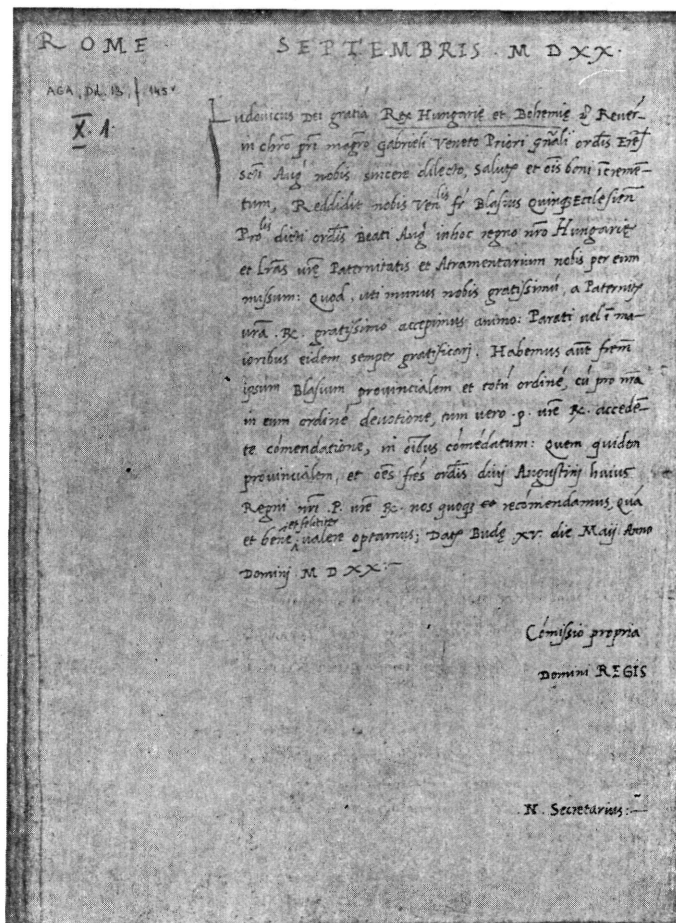 ROME SEPTEMBRIS · M D XX ·
AGA, Dd. 13, f. 145v
X. 1.
Ludovicus Dei gratia Rex Hungarię et Bohemię & Reveren̄
in chrō pri magrō Gabrieli Veneto Priori gñali ordīs Erēt
scti Aug nobis sincere dilecto, Salutē et oīs boni īcremē-
tum, Reddidit nobis Venlis fr̄ Blasius Quinqꝫ Ecclesieñ
Prolis dicti ordīs Beati Aug in hoc regno nr̄o Hungarię
et lr̄as vrę Paternitatis et Atramentarium nobis per eum
missum: Quod, uti munus nobis gratissimū, a Paternitē
vrā . R. gratissimo accepimus animo: Parati vel ī ma-
ioribus eidem semper gratificarj. Habemus aūt frēm
ipsum Blasium provincialem et totū ordinē, cū pro nrā
in eum ordinē devotione, tum vero .p. vrę R. accedē-
te cōmendatione, in oībus cōmēdatum: Quem quidem
provincialem, et oēs frēs ordīs divj Augustinj huius
Regni nrī .P. vrę R. nos quoqꝫ et recōmendamus, quā
et bene et feliciter valere optamus; Datę Budę XV. die Maij Anno
Dominj M D XX:—
Cōmissio propria
Domini REGIS
.N. Secretarius:—